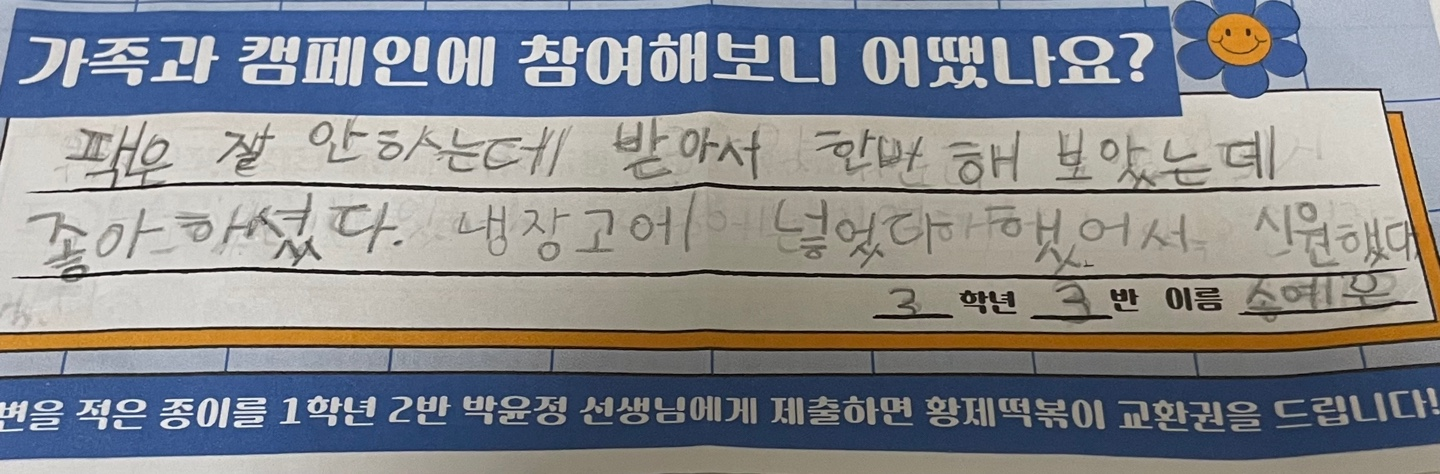 가족과 캠페인에 참여해보니 어땠나요?
팩우 잘 안하는데 받아서 한번 해 보았는데
좋아하셨다. 냉장고에 넣었다 했어서 시원했다
3 학년 3 반 이름 송예우
변을 적은 종이를 1학년 2반 박윤정 선생님에게 제출하면 황제떡볶이 교환권을 드립니다!